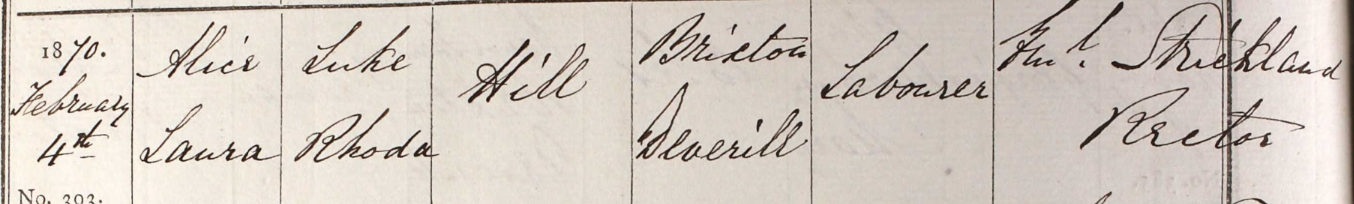 1870.
February
4th
Alice
Laura
Luke
Rhoda
Hill
Brixton
Deverill
Labourer
Strickland
Rector
No. 393.